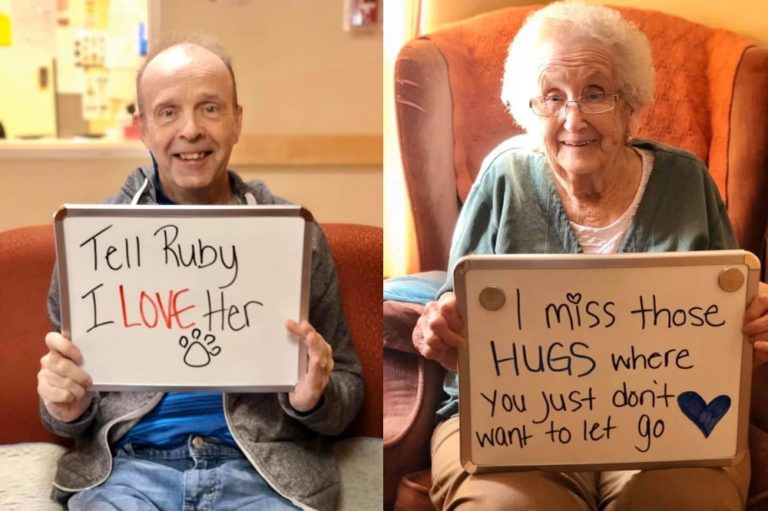 Tell Ruby
I LOVE Her
I miss those
HUGS where
you just don't
want to let go